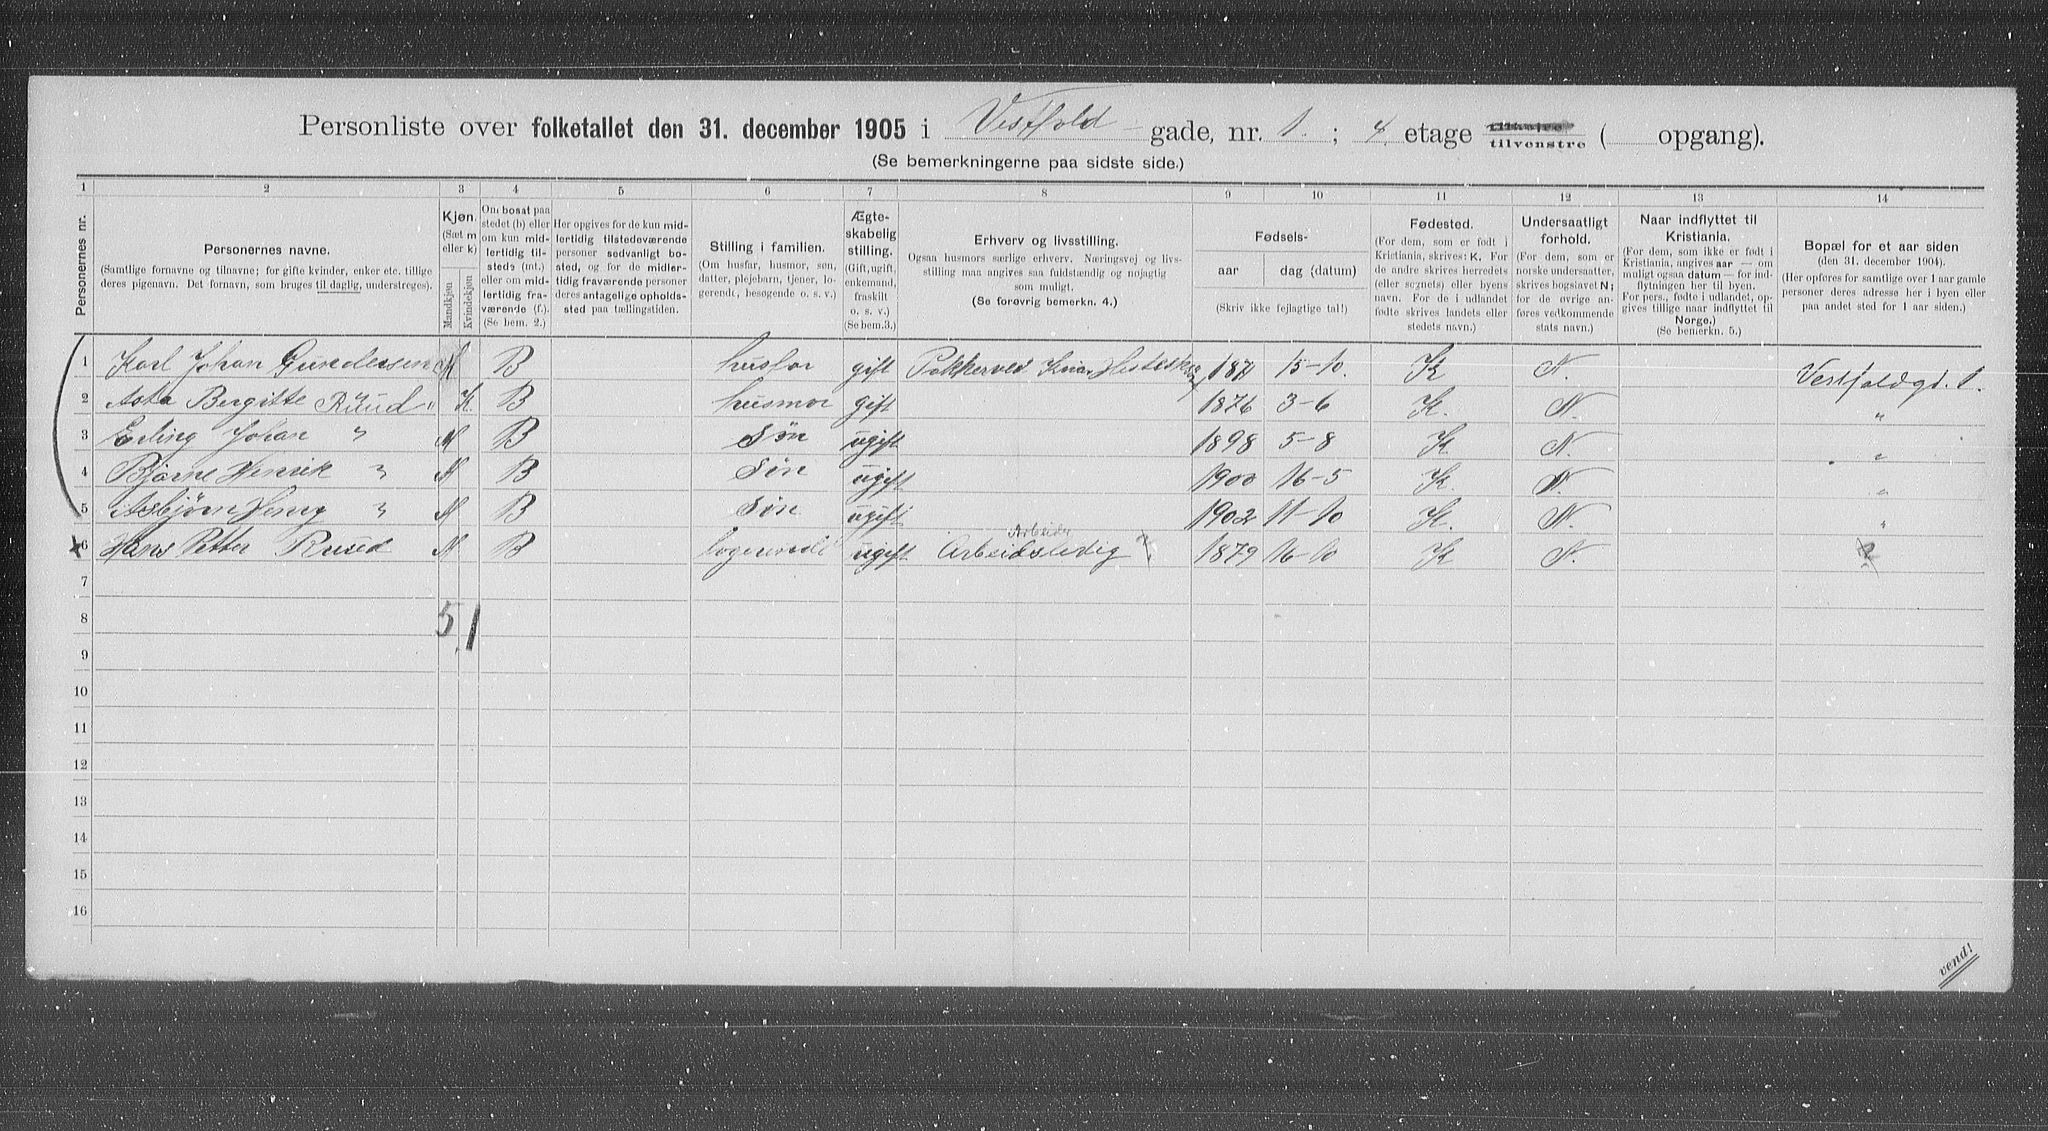 Personliste over folketallet den 31. december 1905 i Vestfold gade, nr. 1. ; 4. etage tilvenstre ( opgang).
(Se bemerkningerne paa sidste side.)
1 2 3 4 5 6 7 8 9 10 11 12 13 14
Personernes nr.
Personernes navne.
(Samtlige fornavne og tilnavne; for gifte kvinder, enker etc. tillige
deres pigenavn. Det fornavn, som bruges til daglig, understreges).
Kjøn.
(Sæt m
eller k)
Mandkjøn
Kvindekjøn
Om bosat paa
stedet (b) eller
om kun mid-
lertidig til-
stede (mt.)
eller om mid-
lertidig fra-
værende (f.).
(Se bem. 2.)
Her opgives for de kun mid-
lertidig tilstedeværende
personer sedvanligt bo-
sted, og for de midler-
tidig fraværende personer
deres antagelige opholds-
sted paa tællingstiden.
Stilling i familien.
(Om husfar, husmor, søn,
datter, plejebarn, tjener, lo-
gerende, besøgende o. s. v.)
Ægte-
skabelig
stilling.
(Gift, ugift,
enkemand,
fraskilt
o. s. v.)
(Se bem. 3.)
Erhverv og livsstilling.
Ogsaa husmors særlige erhverv. Næringsvej og livs-
stilling maa angives saa fuldstændig og nøjagtig
som muligt.
(Se forøvrig bemerkn. 4.)
Fødsels-
aar
dag (datum)
(Skriv ikke fejlagtige tal!)
Fødested.
(For dem, som er født i
Kristiania, skrives: K. For
de andre skrives herredets
(eller sognets) eller byens
navn. For de i udlandet
fødte skrives landets eller
stedets navn.)
Undersaatligt
forhold.
(For dem, som er
norske undersaatter,
skrives bogstavet N;
for de øvrige an-
føres vedkommende
stats navn.)
Naar indflyttet til
Kristiania.
(For dem, som ikke er født i
Kristiania, angives aar — om
muligt ogsaa datum — for ind-
flytningen her til byen.
For pers., fødte i udlandet, op-
gives tillige naar indflyttet til
Norge.)
(Se bemerkn. 5.)
Bopæl for et aar siden
(den 31. december 1904).
(Her opføres for samtlige over 1 aar gamle
personer deres adresse her i byen eller
paa andet sted for 1 aar siden.)
1 Karl Johan Gundersen M B husfar gift Pakkerved 1871 15-10. K N. Vestfoldgt. 1.
2 Asta Bergitte Ruud K. B husmor gift 1876 3-6 K. N. "
3 Erling Johan " M B Søn ugift 1898 5-8 K N "
4 Bjarne Henrik " M B Søn ugift 1900 16-5 K. N. "
5 Asbjørn Henry " M B Søn ugift 1902 11-10 K. N. "
Arbeider
x 6 Hans Petter Ruud M B logerende ugift Arbeidsledig ? 1879 16-10 K N. ?
7
8 5 1
9
10
11
12
13
14
15
16
vend!